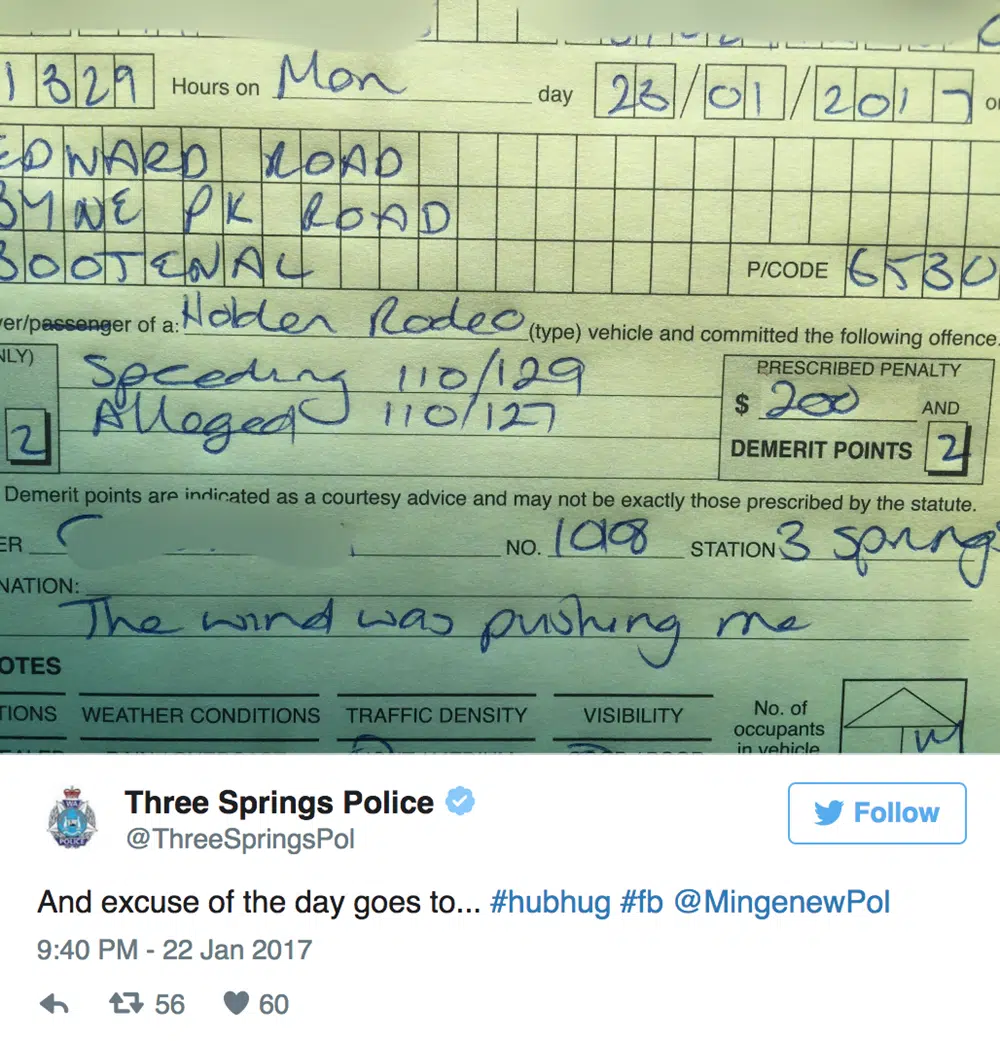 1329 Hours on Mon day 23/01/2017
EDWARD ROAD
BYNE PK ROAD
BOOTENAL P/CODE 6530
er/passenger of a: Holden Rodeo (type) vehicle and committed the following offence.
NLY) Speeding 110/129 PRESCRIBED PENALTY
Alleged 110/127 $ 200 AND
2 DEMERIT POINTS 2
Demerit points are indicated as a courtesy advice and may not be exactly those prescribed by the statute.
ER NO. STATION 3 Springs
NATION:
The wind was pushing me
OTES
TIONS WEATHER CONDITIONS TRAFFIC DENSITY VISIBILITY No. of
occupants
in vehicle
Three Springs Police
@ThreeSpringsPol
Follow
And excuse of the day goes to... #hubhug #fb @MingenewPol
9:40 PM - 22 Jan 2017
56 60